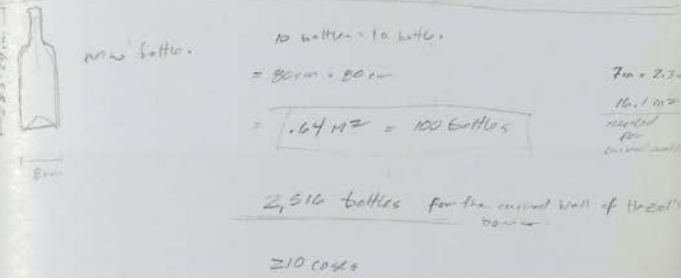 wine bottle.
10 bottles × 10 bottles
= 80cm × 80cm
= .64 M² = 100 bottles
8cm
7m × 2.3
16.1 m²
needed
for
curved wall
2,516 bottles for the curved wall of Hazel's
210 cases